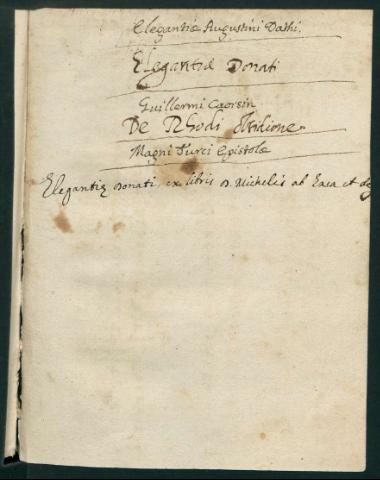 Elegantiæ Augustini Dathi.
Elegantiæ Donati
Guillermi Caorsin
De Rhodi
Magni Turci Epistolæ
Elegantiæ Donati, ex libris D. Michelis ab et